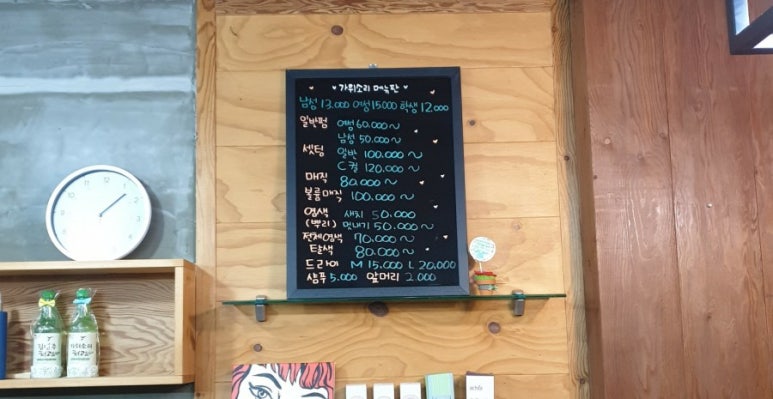 가위소리 메뉴판
남성 13.000 여성 15000 학생 12.000
일반펌 여성 60.000 ~
남성 50.000 ~
셋팅 일반 100.000 ~
C컬 120.000 ~
매직 80.000 ~
볼륨매직 100.000 ~
염색 새치 50.000
(뿌리) 멋내기 50.000 ~
전체염색 70.000 ~
탈색 80.000 ~
드라이 M 15.000 L 20.000
샴푸 5.000 앞머리 2.000